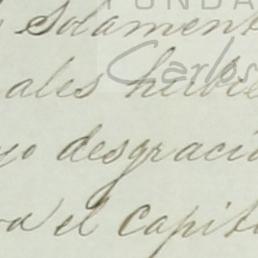 FUNDA
Solament
Carlos
ales hubie
yo desgracia
el capit